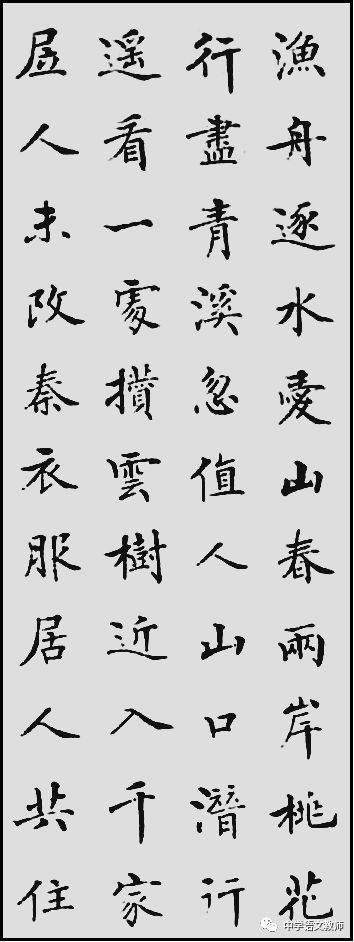 漁舟逐水愛山春兩岸桃花
行盡青溪忽值人山口潛行
遥看一處攢雲樹近入千家
居人未改秦衣服居人共住
中学语文教师